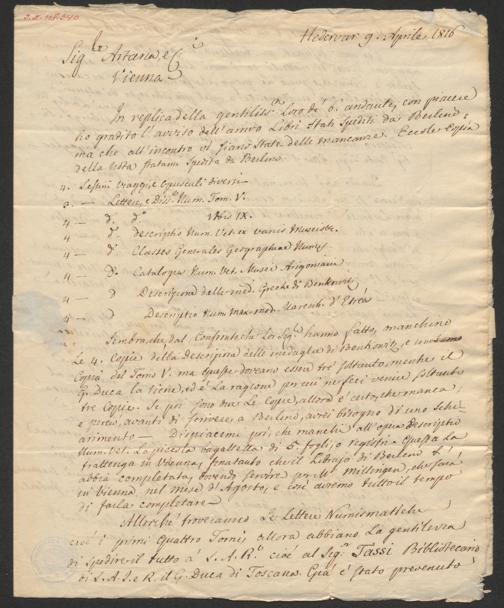 Hedervar 9. Aprile 1816
Sig.ri Artaria e C.
Vienna
In replica della gentiliss.ma Loro de' 6. andante, con piacere
ho gradito l'avviso dell'arrivo Libri stati spediti da Berlino,
ma che all'incontro vi siano state delle mancanze. Eccole Copia
della Nota statami spedita da Berlino
4. Sestini viaggi e opuscoli diversi
3. — Lettere, e Diss. Num. Tom. V.
4 — d.° d.° VI. a IX.
4 — d.° descriptio Num. Vet. ex variis Museis
4 — d.° Classes Generales Geographiae Num.
4 — d.° Catalogus Num. Vet. Musei Arigoniani
4 — d.° Descrizione delle med. Greche di Benkowitz
4 — d.° Descriptio Num. max. mod.
Sembra, che dal Confronto che Lor Sig.ri hanno fatto, manchino
Le 4. Copie della Descrizione delle medaglie di Benkowitz, e
Copia del Tomo V. ma queste doveano esser tre soltanto, mentre il
G. Duca la tiene, ed è la ragione per cui ne feci venire soltanto
tre Copie. Se poi sono tre Le Copie, allora è certo, che manca,
e però, avanti di scrivere a Berlino, avrei bisogno di uno schiarimento —
Dispiacemi poi, che manchi all'opera Descriptio
Num. Vet. La piccola bagattella di 5. fogli, o registri. Questa La
trattenga in Vienna, sintanto che il Librajo di Berlino L'
abbia completata, dovendo servire per Mr. Millingen, che sarà
in Vienna nel mese d'Agosto, e così avremo tutto il tempo
di farla completare —
Allorchè troveranno Le Lettere Numismatiche
cioè i primi quattro Tomi, allora abbiano La gentilezza
di spedire il tutto a S.A.R. cioè al Sig. Tassi Bibliotecario
di S.A.I. e R. il G. Duca di Toscana. Già è stato prevenuto